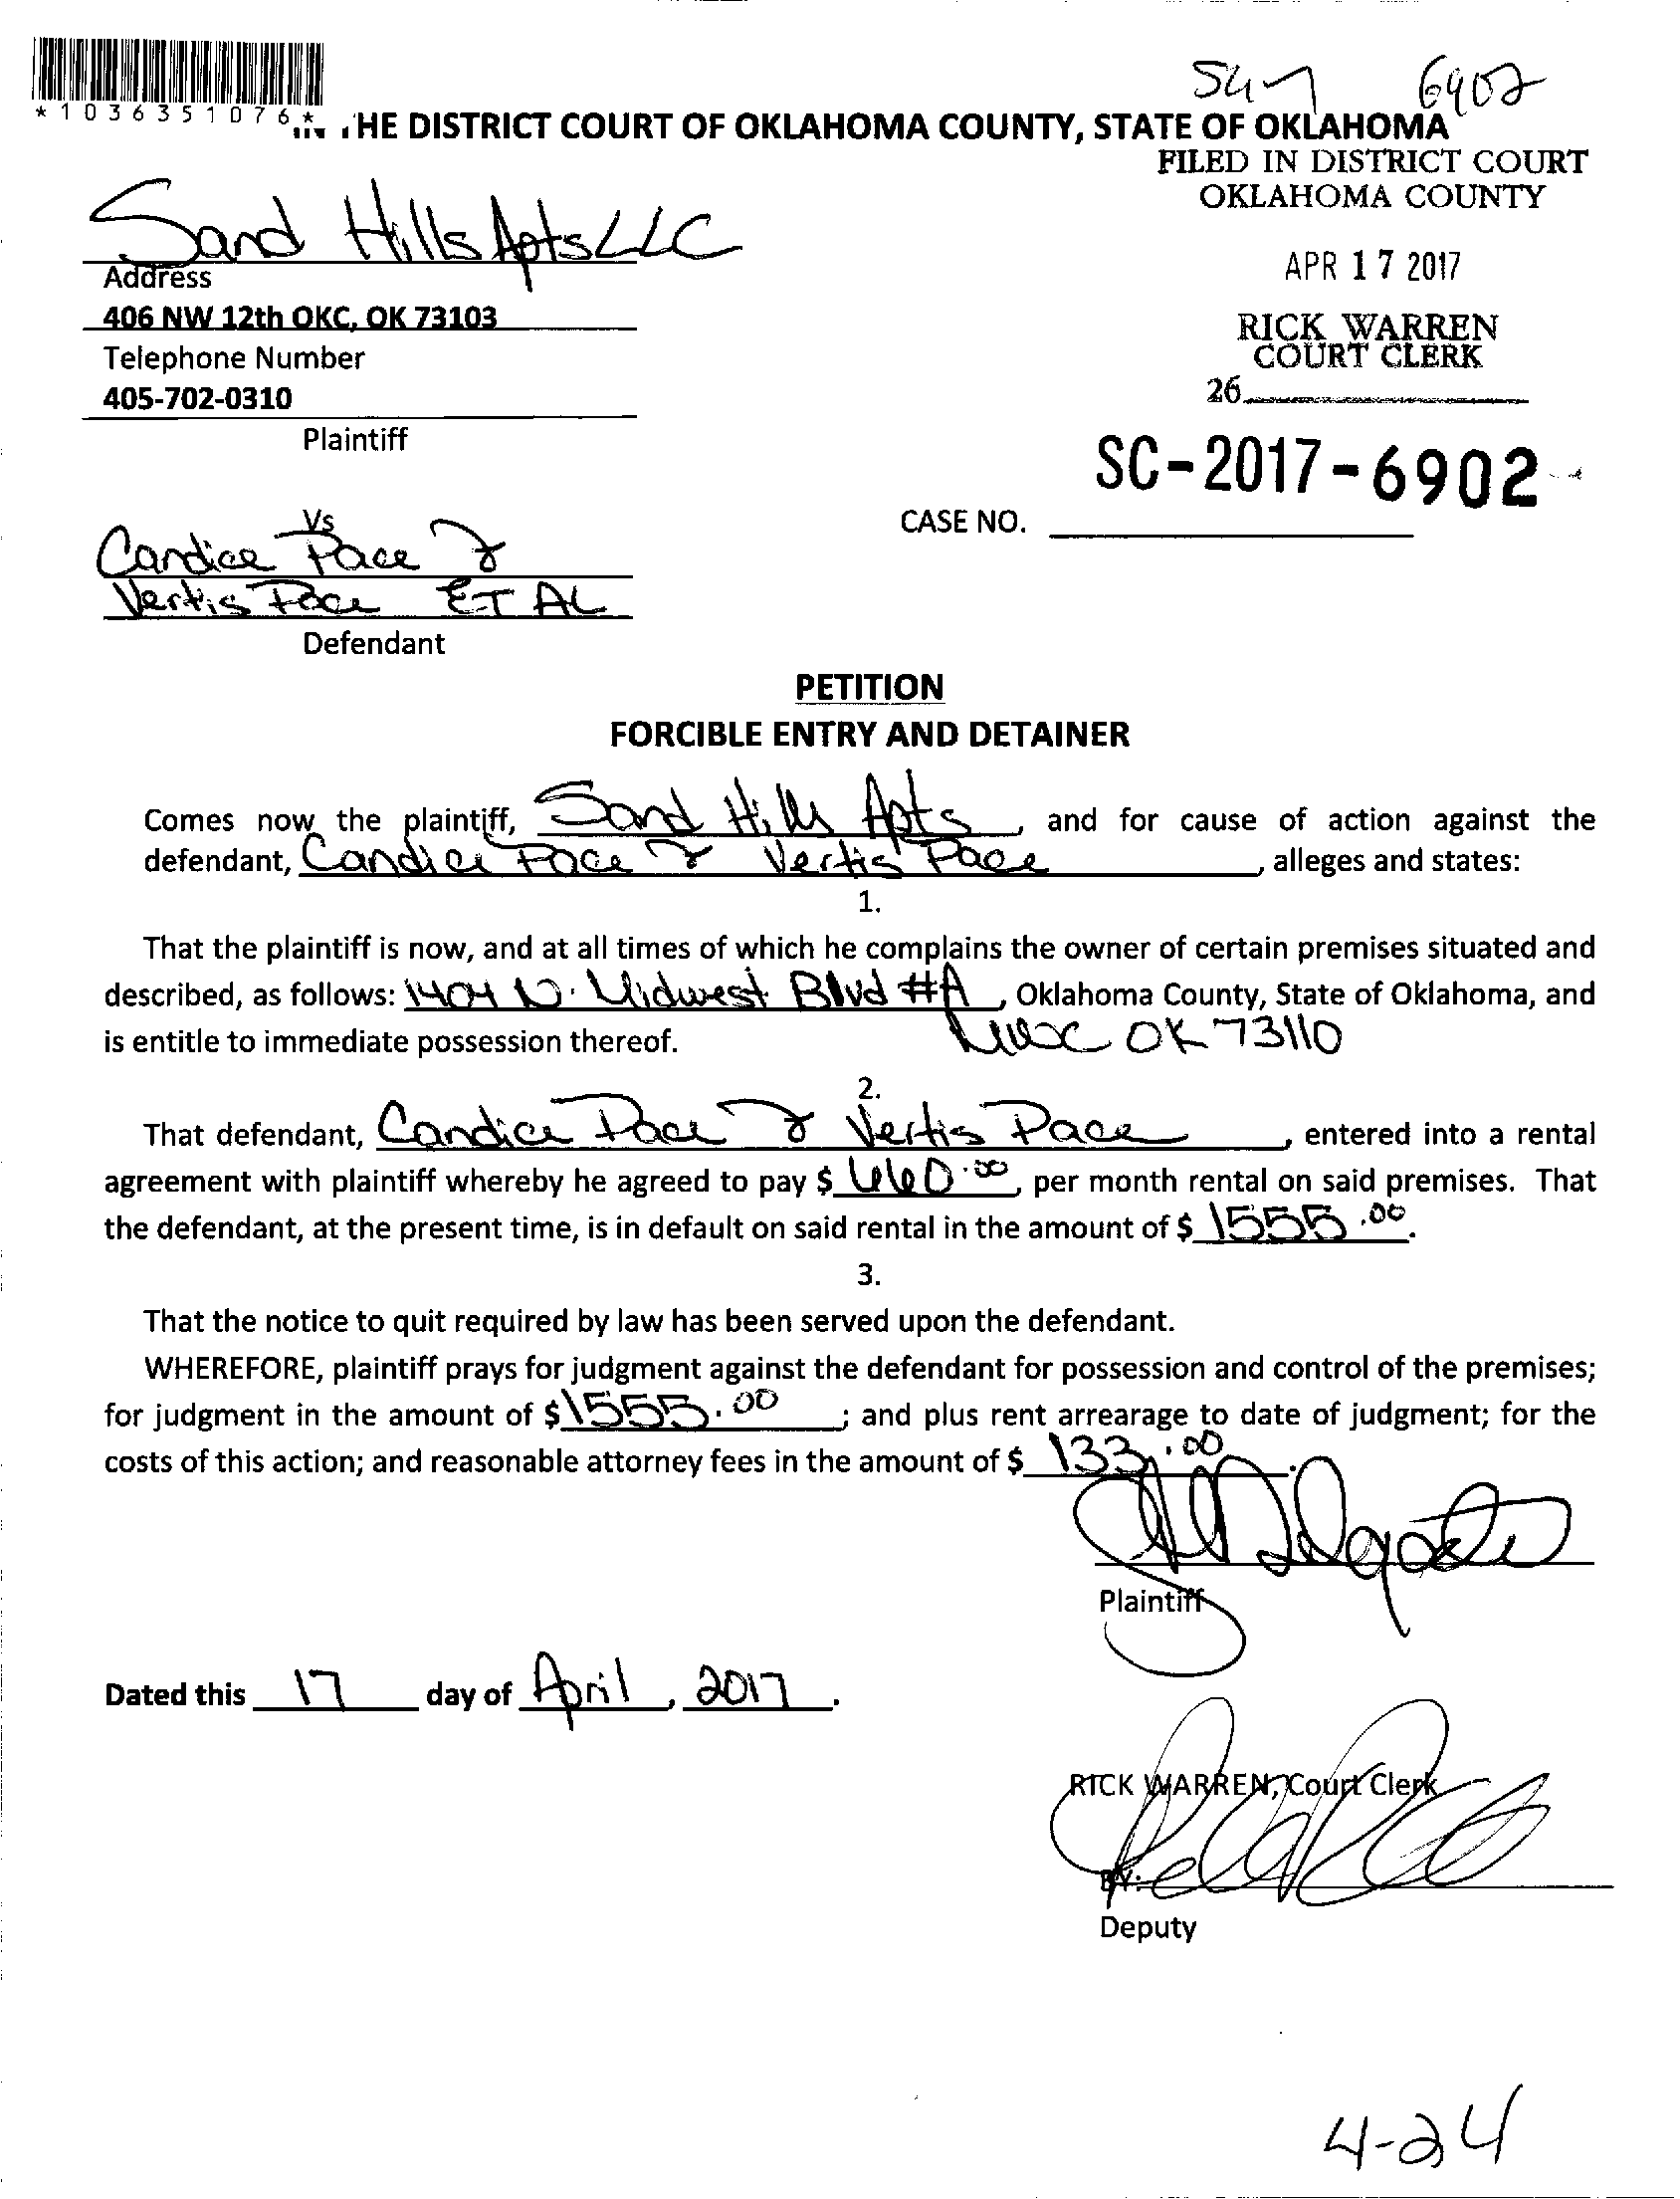 6902
*1036351076*
THE DISTRICT COURT OF OKLAHOMA COUNTY, STATE OF OKLAHOMA
FILED IN DISTRICT COURT
OKLAHOMA COUNTY
Sand Hills Apts LLC
Address
APR 17 2017
406 NW 12th OKC, OK 73103
RICK WARREN
COURT CLERK
Telephone Number
405-702-0310
26
Plaintiff
SC-2017-6902
Vs
CASE NO.
Candice Pace &
Vertis Pace ET AL
Defendant
PETITION
FORCIBLE ENTRY AND DETAINER
Comes now the plaintiff, Sand Hills Apts, and for cause of action against the
defendant, Candice Pace & Vertis Pace, alleges and states:
1.
That the plaintiff is now, and at all times of which he complains the owner of certain premises situated and
described, as follows: 1404 N. Midwest Blvd #A, Oklahoma County, State of Oklahoma, and
is entitle to immediate possession thereof. MWC OK 73110
2.
That defendant, Candice Pace & Vertis Pace, entered into a rental
agreement with plaintiff whereby he agreed to pay $ 660.00, per month rental on said premises. That
the defendant, at the present time, is in default on said rental in the amount of $ 1555.00.
3.
That the notice to quit required by law has been served upon the defendant.
WHEREFORE, plaintiff prays for judgment against the defendant for possession and control of the premises;
for judgment in the amount of $1555.00; and plus rent arrearage to date of judgment; for the
costs of this action; and reasonable attorney fees in the amount of $ 133.00.
Plaintiff
Dated this 17 day of April, 2017.
RICK WARREN, Court Clerk
BY:
Deputy
4-24